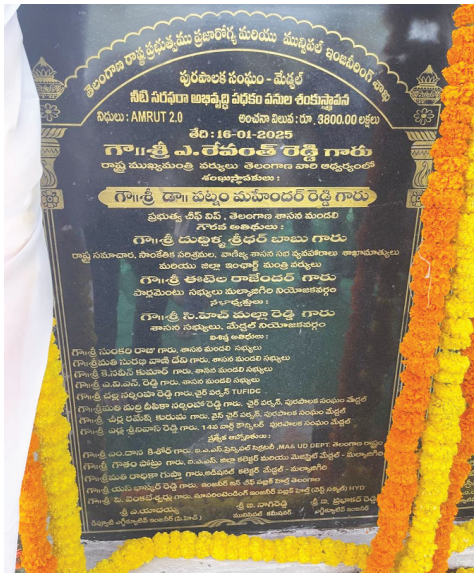 తెలంగాణ రాష్ట్ర ప్రభుత్వము ప్రజారోగ్య మరియు మున్సిపల్ ఇంజనీరింగ్ శాఖ
పురపాలక సంఘం - మేడ్చల్
నీటి సరఫరా అభివృద్ధి పథకం పనుల శంకుస్థాపన
నిధులు : AMRUT 2.0 అంచనా విలువ : రూ. 3800.00 లక్షలు
తేది : 16-01-2025
గౌ॥శ్రీ ఎ.రేవంత్ రెడ్డి గారు
రాష్ట్ర ముఖ్యమంత్రి వర్యులు తెలంగాణ వారి ఆధ్వర్యంలో
శంఖుస్థాపకులు :
గౌ॥శ్రీ డా॥ పట్నం మహేందర్ రెడ్డి గారు
ప్రభుత్వ చీఫ్ విప్, తెలంగాణ శాసన మండలి
గౌరవ అతిథులు :
గౌ॥శ్రీ దుద్దిళ్ళ శ్రీధర్ బాబు గారు
రాష్ట్ర సమాచార, సాంకేతిక పరిశ్రమల, వాణిజ్య శాసన సభ వ్యవహారాలు శాఖామాత్యులు
మరియు జిల్లా ఇంఛార్జ్ మంత్రి వర్యులు
గౌ॥శ్రీ ఈటెల రాజేందర్ గారు
పార్లమెంటు సభ్యులు మల్కాజిగిరి నియోజకవర్గం
సభాధ్యక్షులు :
గౌ॥శ్రీ సి.హెచ్ మల్లా రెడ్డి గారు
శాసన సభ్యులు, మేడ్చల్ నియోజకవర్గం
విశిష్ట అతిథులు :
గౌ॥శ్రీ సుంకరి రాజు గారు, శాసన మండలి సభ్యులు
గౌ॥శ్రీమతి సురభి వాణి దేవి గారు, శాసన మండలి సభ్యులు
గౌ॥శ్రీ కె.నవీన్ కుమార్ గారు, శాసన మండలి సభ్యులు
గౌ॥శ్రీ ఎ.వి.ఎన్. రెడ్డి గారు, శాసన మండలి సభ్యులు
గౌ॥శ్రీ చల్లా నర్సింహా రెడ్డి గారు, చైర్ పర్సన్ TUFIDC
గౌ॥శ్రీమతి మర్రి దీపికా నర్సింహా రెడ్డి గారు, చైర్ పర్సన్, పురపాలక సంఘం మేడ్చల్
గౌ॥శ్రీ చీర్ల రమేష్ కురుమ గారు, వైస్ చైర్ పర్సన్, పురపాలక సంఘం మేడ్చల్
గౌ॥శ్రీ పల్లె శ్రీనివాస్ రెడ్డి గారు, 14వ వార్డ్ కౌన్సిలర్ పురపాలక సంఘం మేడ్చల్
ప్రత్యేక ఆహ్వానితులు :
గౌ॥శ్రీ ఎం.దాన కిశోర్ గారు, ఐ.ఎ.ఎస్.ప్రిన్సిపల్ సెక్రటరీ, MA& UD DEPT. తెలంగాణ రాష్ట్రం
గౌ॥శ్రీ గౌతం పోట్రు గారు, ఐ.ఎ.ఎస్. జిల్లా కలెక్టర్ మరియు మెజిస్ట్రేట్ మేడ్చల్ - మల్కాజిగిరి
గౌ॥శ్రీమతి రాధికా గుప్తా గారు, అడిషనల్ కలెక్టర్ మేడ్చల్ - మల్కాజిగిరి
గౌ॥శ్రీ యస్ భాస్కర్ రెడ్డి గారు, ఇంజనీర్ ఇన్ చీఫ్ పబ్లిక్ హెల్త్ తెలంగాణ
గౌ॥శ్రీ బి. వెంకటేశ్వర్లు గారు, సూపరింటెండింగ్ ఇంజనీర్ పబ్లిక్ హెల్త్ (వెస్ట్ సర్కిల్) HYD
శ్రీ ఎ.యాదయ్య శ్రీ బి. నాగిరెడ్డి శ్రీ బి. ప్రభాకర్ రెడ్డి
మునిసిపల్ కమీషనర్